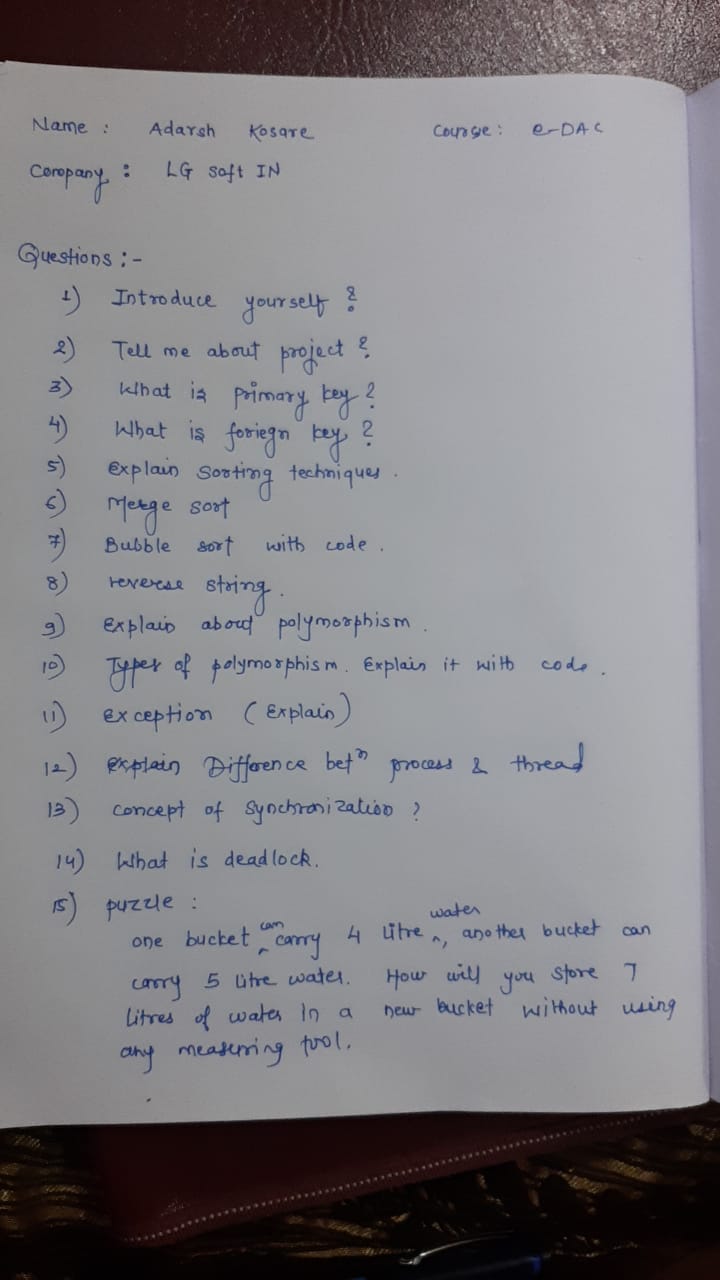 Name : Adarsh Kosare Course : e-DAC
Company : LG Soft IN
Questions :-
1) Introduce yourself ?
2) Tell me about project ?
3) What is primary key ?
4) What is foriegn key ?
5) Explain Sorting techniques .
6) Merge sort
7) Bubble sort with code .
8) reverse string .
9) Explain about polymorphism .
10) Types of polymorphism . Explain it with code .
11) Exception ( Explain )
12) Explain Difference betn process & thread
13) concept of synchronization ?
14) What is deadlock .
15) puzzle :
one bucket can carry 4 litre water , another bucket can
carry 5 litre water . How will you store 7
litres of water in a new bucket without using
any measuring tool .